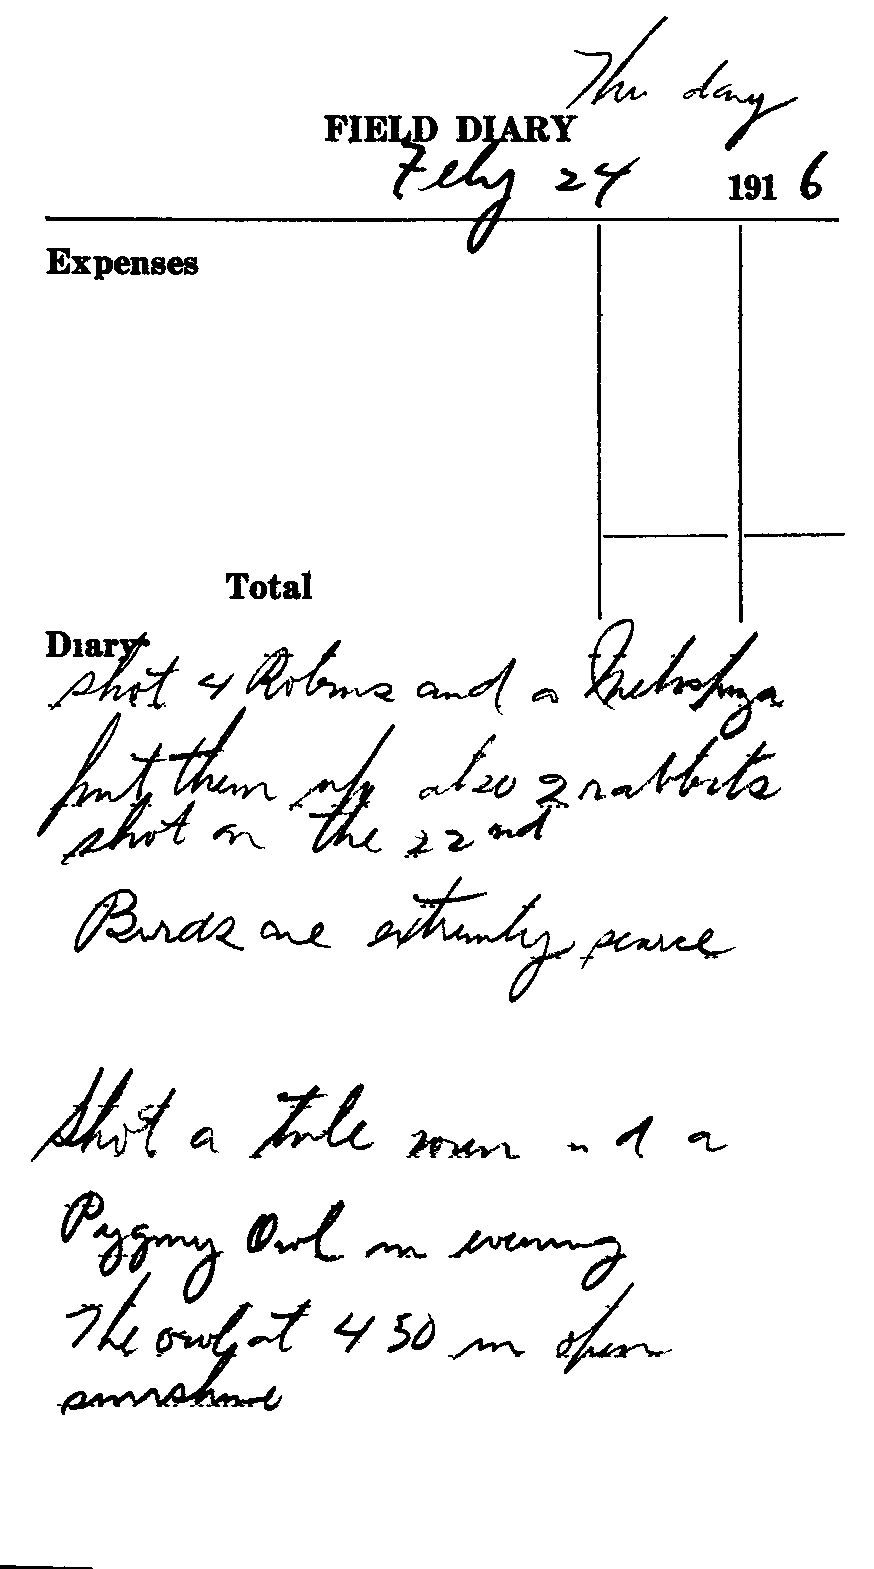 Thu day
FIELD DIARY
Feby 24 1916
Expenses
Total
Diary
shot 4 Robins and a
put them up also 2 rabbits
shot on the 22nd
Birds are extremly scarce
Shot a Tule wren and a
Pygmy Owl in evening
The owl at 4 50 in open
sunshine